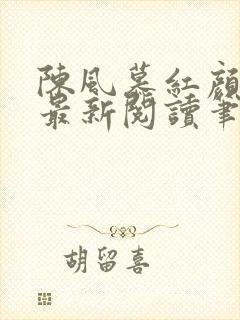 陳風慕紅顏
最新閱讀筆
胡留喜